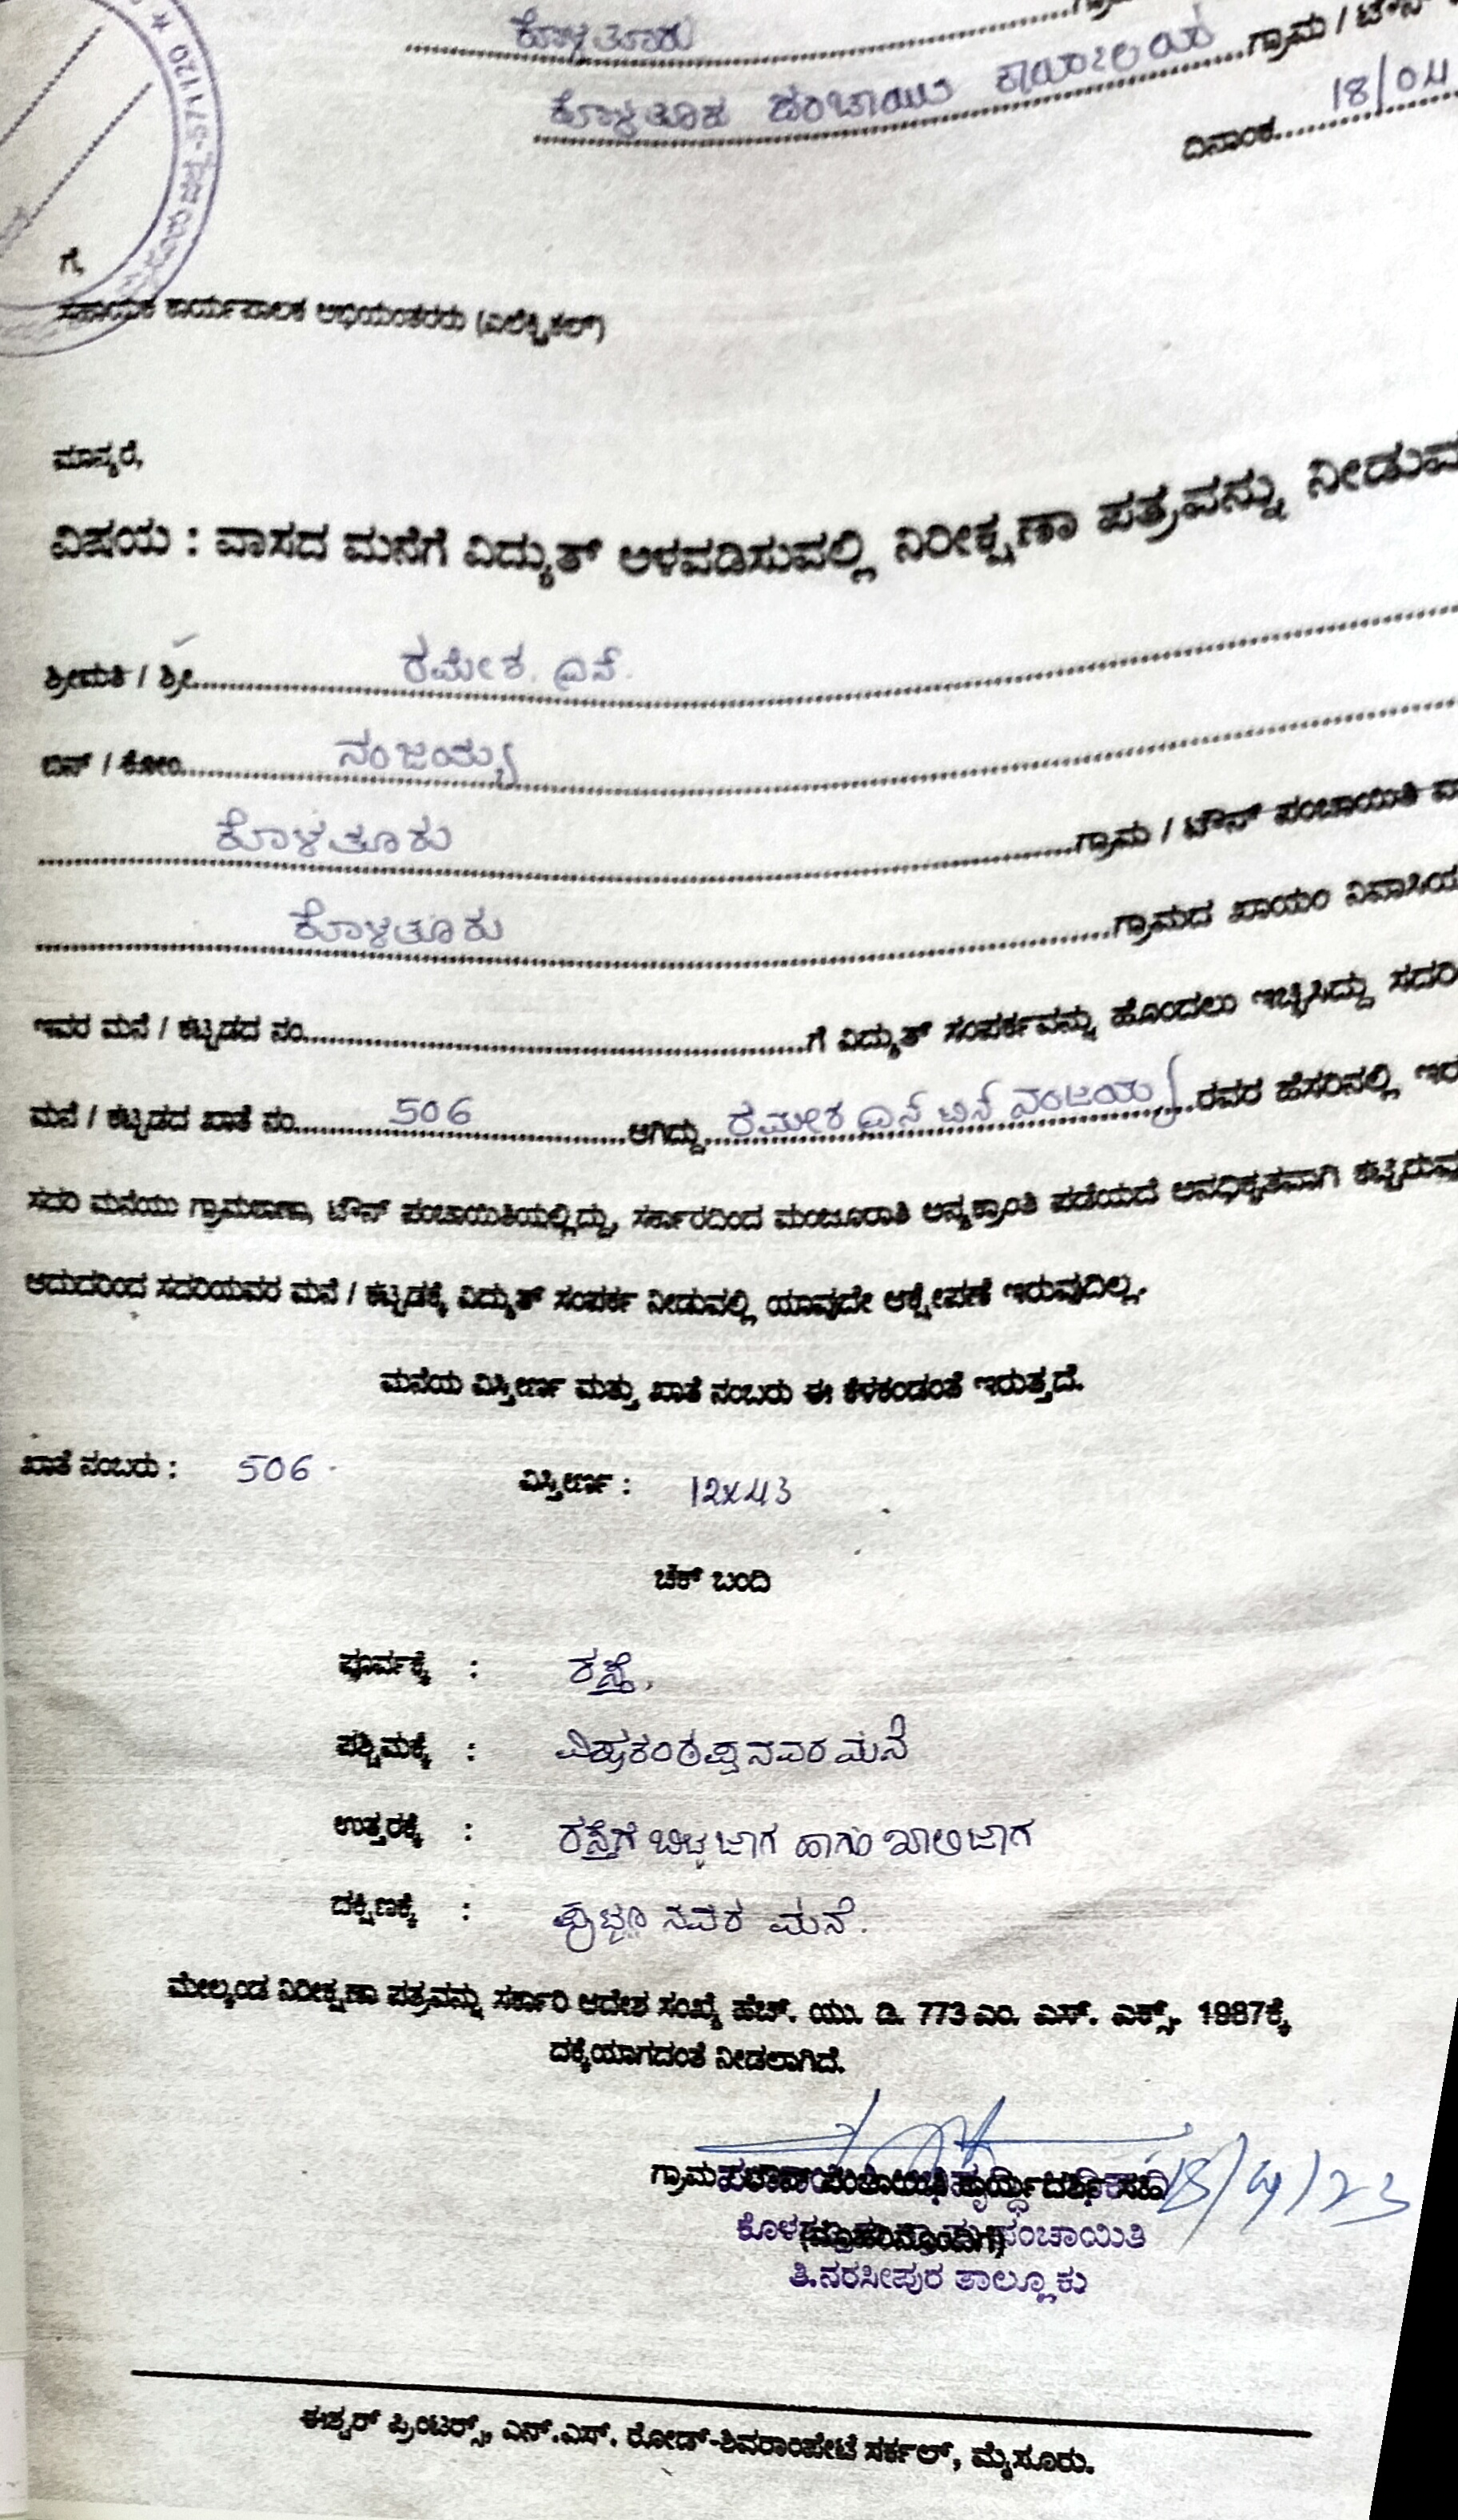 ಕೊಳತೂರು
ಕೊಳತೂರು ಪಂಚಾಯಿತಿ ಕಾರ್ಯಾಲಯ ಗ್ರಾಮ / ಟೌನ್
ದಿನಾಂಕ 18/04
571120
ಗೆ,
ಸಹಾಯಕ ಕಾರ್ಯಪಾಲಕ ಅಭಿಯಂತರರು (ಎಲೆಕ್ಟ್ರಿಕಲ್)
ಮಾನ್ಯರೆ,
ವಿಷಯ : ವಾಸದ ಮನೆಗೆ ವಿದ್ಯುತ್ ಅಳವಡಿಸುವಲ್ಲಿ ನಿರೀಕ್ಷಣಾ ಪತ್ರವನ್ನು ನೀಡುವ
ಶ್ರೀಮತಿ / ಶ್ರೀ ರಮೇಶ. ಎನ್.
ಬಿನ್ / ಕೋಂ ನಂಜಯ್ಯ
ಕೊಳತೂರು ಗ್ರಾಮ / ಟೌನ್ ಪಂಚಾಯಿತಿ
ಕೊಳತೂರು ಗ್ರಾಮದ ಖಾಯಂ ನಿವಾಸಿಯ
ಇವರ ಮನೆ / ಕಟ್ಟಡದ ನಂ. ಗೆ ವಿದ್ಯುತ್ ಸಂಪರ್ಕವನ್ನು ಹೊಂದಲು ಇಚ್ಛಿಸಿದ್ದು ಸದರಿ
ಮನೆ / ಕಟ್ಟಡದ ಖಾತೆ ನಂ. 506 ಆಗಿದ್ದು ರಮೇಶ ಎನ್ ಬಿನ್ ನಂಜಯ್ಯ ರವರ ಹೆಸರಿನಲ್ಲಿ ಇರ
ಸದರಿ ಮನೆಯು ಗ್ರಾಮಠಾಣಾ, ಟೌನ್ ಪಂಚಾಯಿತಿಯಲ್ಲಿದ್ದು, ಸರ್ಕಾರದಿಂದ ಮಂಜೂರಾತಿ ಅನ್ಯಕ್ರಾಂತಿ ಪಡೆಯದೆ ಅನಧಿಕೃತವಾಗಿ ಕಟ್ಟಿರುವು
ಆದುದರಿಂದ ಸದರಿಯವರ ಮನೆ / ಕಟ್ಟಡಕ್ಕೆ ವಿದ್ಯುತ್ ಸಂಪರ್ಕ ನೀಡುವಲ್ಲಿ ಯಾವುದೇ ಆಕ್ಷೇಪಣೆ ಇರುವುದಿಲ್ಲ.
ಮನೆಯ ವಿಸ್ತೀರ್ಣ ಮತ್ತು ಖಾತೆ ನಂಬರು ಈ ಕೆಳಕಂಡಂತೆ ಇರುತ್ತದೆ.
ಖಾತೆ ನಂಬರು : 506 ವಿಸ್ತೀರ್ಣ : 12x43
ಚೆಕ್ ಬಂದಿ
ಪೂರ್ವಕ್ಕೆ : ರಸ್ತೆ.
ಪಶ್ಚಿಮಕ್ಕೆ : ಮನೆ
ಉತ್ತರಕ್ಕೆ : ರಸ್ತೆಗೆ ಬಿಟ್ಟ ಜಾಗ ಹಾಗು ಖಾಲಿ ಜಾಗ
ದಕ್ಷಿಣಕ್ಕೆ : ನವರ ಮನೆ.
ಮೇಲ್ಕಂಡ ನಿರೀಕ್ಷಣಾ ಪತ್ರವನ್ನು ಸರ್ಕಾರಿ ಆದೇಶ ಸಂಖ್ಯೆ ಹೆಚ್. ಯು. ಡಿ. 773 ಎಂ. ಎಸ್. ಎಕ್ಸ್. 1987ಕ್ಕೆ
ದಕ್ಕೆಯಾಗದಂತೆ ನೀಡಲಾಗಿದೆ.
18/4/23
ಪಂಚಾಯಿತಿ
(ಮೊಹರಿನೊಂದಿಗೆ)
ತಿ.ನರಸೀಪುರ ತಾಲ್ಲೂಕು
ಈಶ್ವರ್ ಪ್ರಿಂಟರ್ಸ್, ಎನ್.ಎಸ್. ರೋಡ್-ಶಿವರಾಂಪೇಟೆ ಸರ್ಕಲ್, ಮೈಸೂರು.